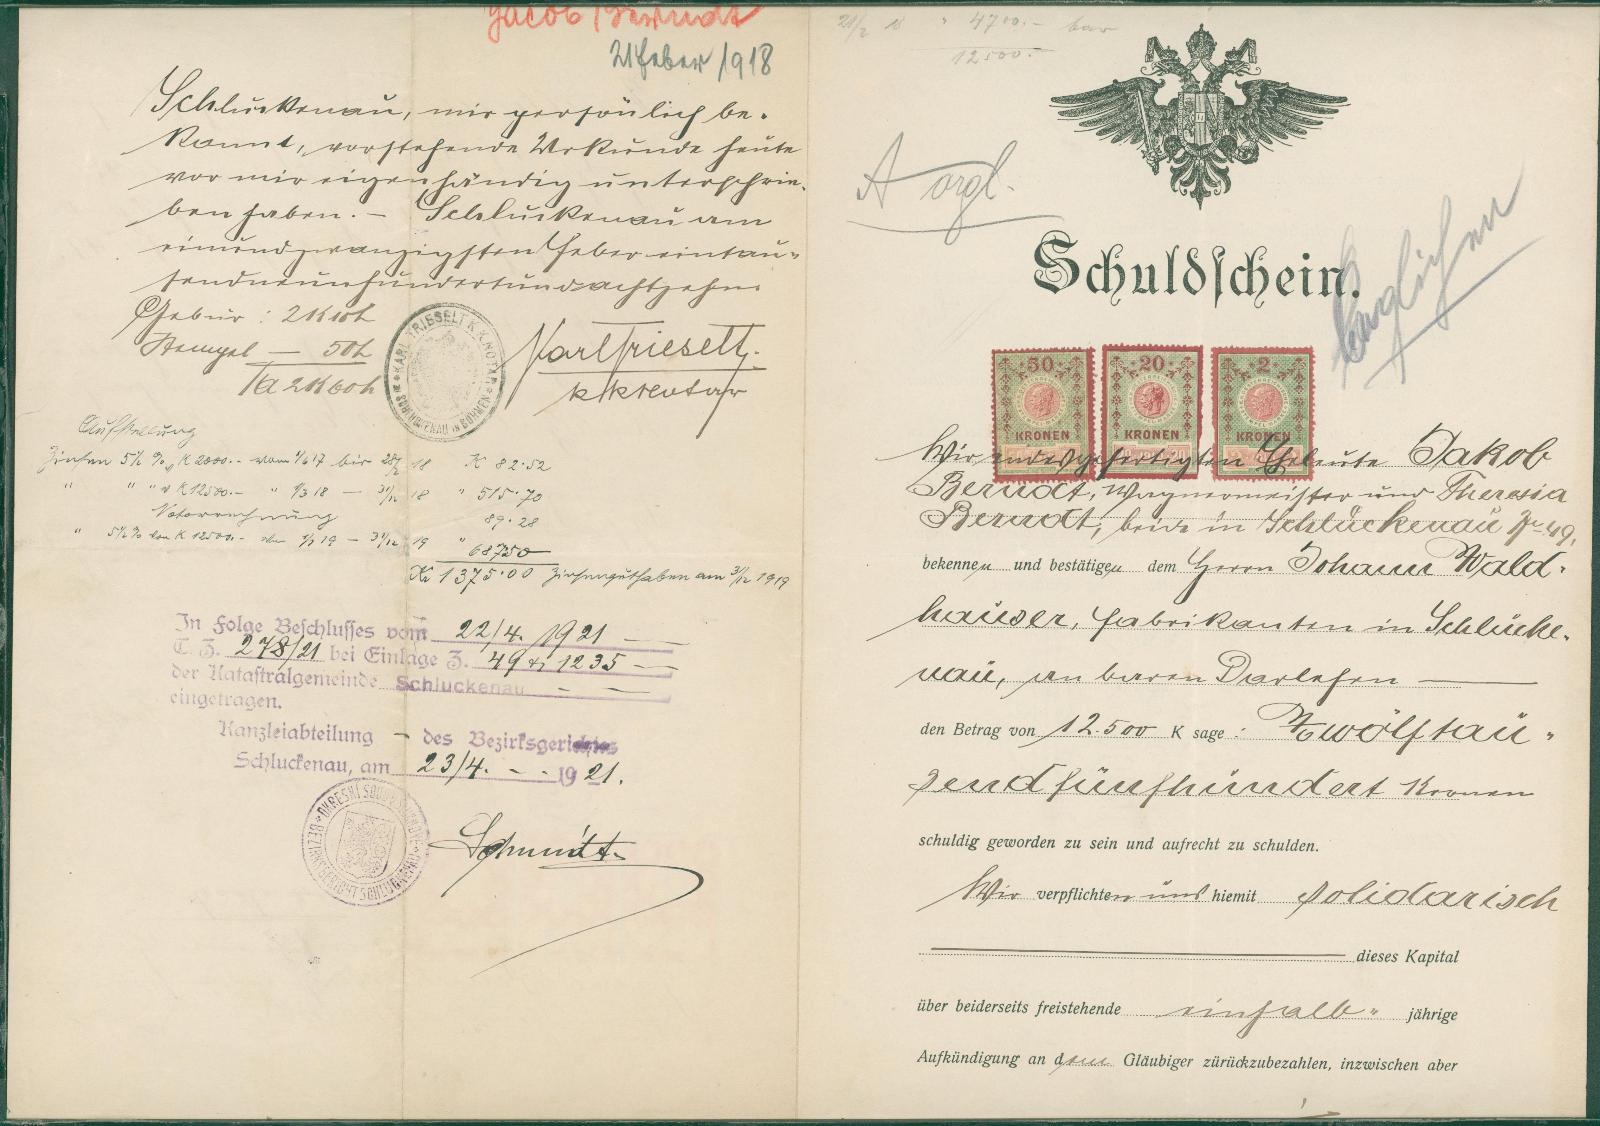 Jacob Berndt
21 Feber 1918
Schluckenau, mir persönlich be-
kannt, vorstehende Urkunde heute
vor mir eigenhändig unterschrie-
ben haben. – Schluckenau am
einundzwanzigsten Feber eintau-
sendneunhundertundachtzehn.
Gebür : 2 K 10 h
Stempel — 50 h
2 K 60 h
KARL TRIESELT K.K. NOTAR
SCHLUCKENAU IN BÖHMEN
Karl Trieselt
k k Notar
Aufstellung
Zinsen 5½ % K 2000.- vom 1/6 17 bis 28/2 18 K 82·52
" " " K 12500.- " 1/3 18 — 31/12 18 " 515·70
Notarrechnung 89·28
" 5½ % von K 12500.- 1/1 19 — 31/12 19 " 687·50
K 1375·00 Zinsenguthaben am 31/12 1919
In Folge Beschlusses vom 22/4. 1921
T. Z. 278/21 bei Einlage Z. 49 & 1235
der Katastralgemeinde Schluckenau
eingetragen.
Kanzleiabteilung – des Bezirksgerichtes
Schluckenau, am 23/4. 1921.
OKRESNÍ SOUD
BEZIRKSGERICHT SCHLUCKENAU
Schmidt
21/2 18 " 4700.- bar
12500.-
A orgl.
Schuldschein.
50 KRONEN
20 KRONEN
2 KRONEN
Wir endesgefertigten Eheleute Jakob
Berndt, Wagnermeister und Theresia
Berndt, beide in Schluckenau Nr 49,
bekennen und bestätigen dem Herrn Johann Wald-
hauser, Fabrikanten in Schlucke-
nau, an baren Darlehen
den Betrag von 12.500 K sage : Zwölftau-
sendfünfhundert Kronen
schuldig geworden zu sein und aufrecht zu schulden.
Wir verpflichten uns hiemit solidarisch
dieses Kapital
über beiderseits freistehende einhalb- jährige
Aufkündigung an dem Gläubiger zurückzubezahlen, inzwischen aber